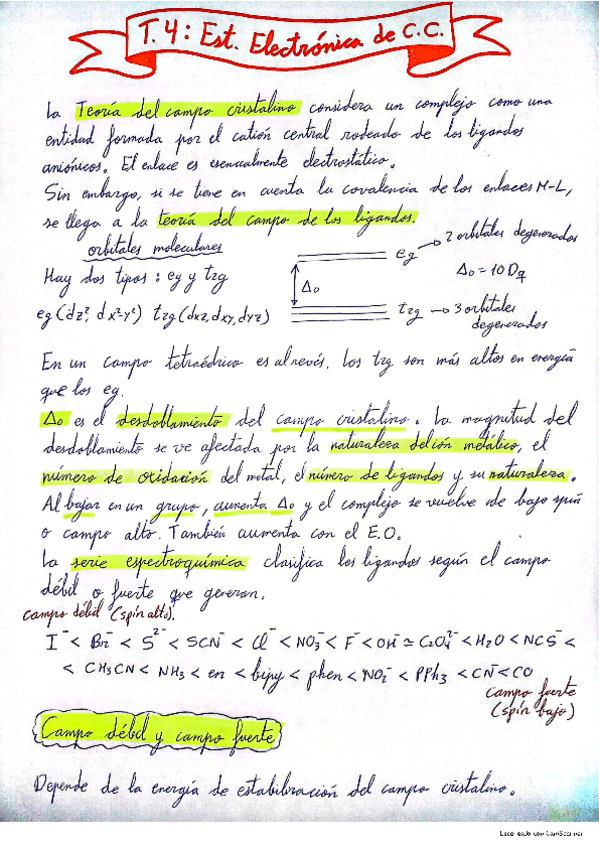 T. 4: Est. Electrónica de C.C.
La Teoría del campo cristalino considera un complejo como una
entidad formada por el catión central rodeado de los ligandos
aniónicos. El enlace es esencialmente electrostático.
Sin embargo, si se tiene en cuenta la covalencia de los enlaces M-L,
se llega a la teoría del campo de los ligandos.
orbitales moleculares
Hay dos tipos: eg y t2g
eg (dz², dx²-y²) t2g (dxz, dxy, dyz)
eg → 2 orbitales degenerados
Δo
Δo = 10 Dq
t2g → 3 orbitales
degenerados
En un campo tetraédrico es al revés. Los t2g son más altos en energía
que los eg.
Δo es el desdoblamiento del campo cristalino. La magnitud del
desdoblamiento se ve afectada por la naturaleza del ión metálico, el
número de oxidación del metal, el número de ligandos y su naturaleza.
Al bajar en un grupo, aumenta Δo y el complejo se vuelve de bajo spin
o campo alto. También aumenta con el E.O.
La serie espectroquímica clasifica los ligandos según el campo
débil o fuerte que generan.
campo débil (spin alto).
I⁻ < Br⁻ < S²⁻ < SCN⁻ < Cl⁻ < NO3⁻ < F⁻ < OH⁻ ≃ C2O4²⁻ < H2O < NCS⁻ <
< CH3CN < NH3 < en < bipy < phen < NO2⁻ < PPh3 < CN⁻ < CO
campo fuerte
(spín bajo)
Campo débil y campo fuerte
Depende de la energía de estabilización del campo cristalino.
Escaneado con CamScanner